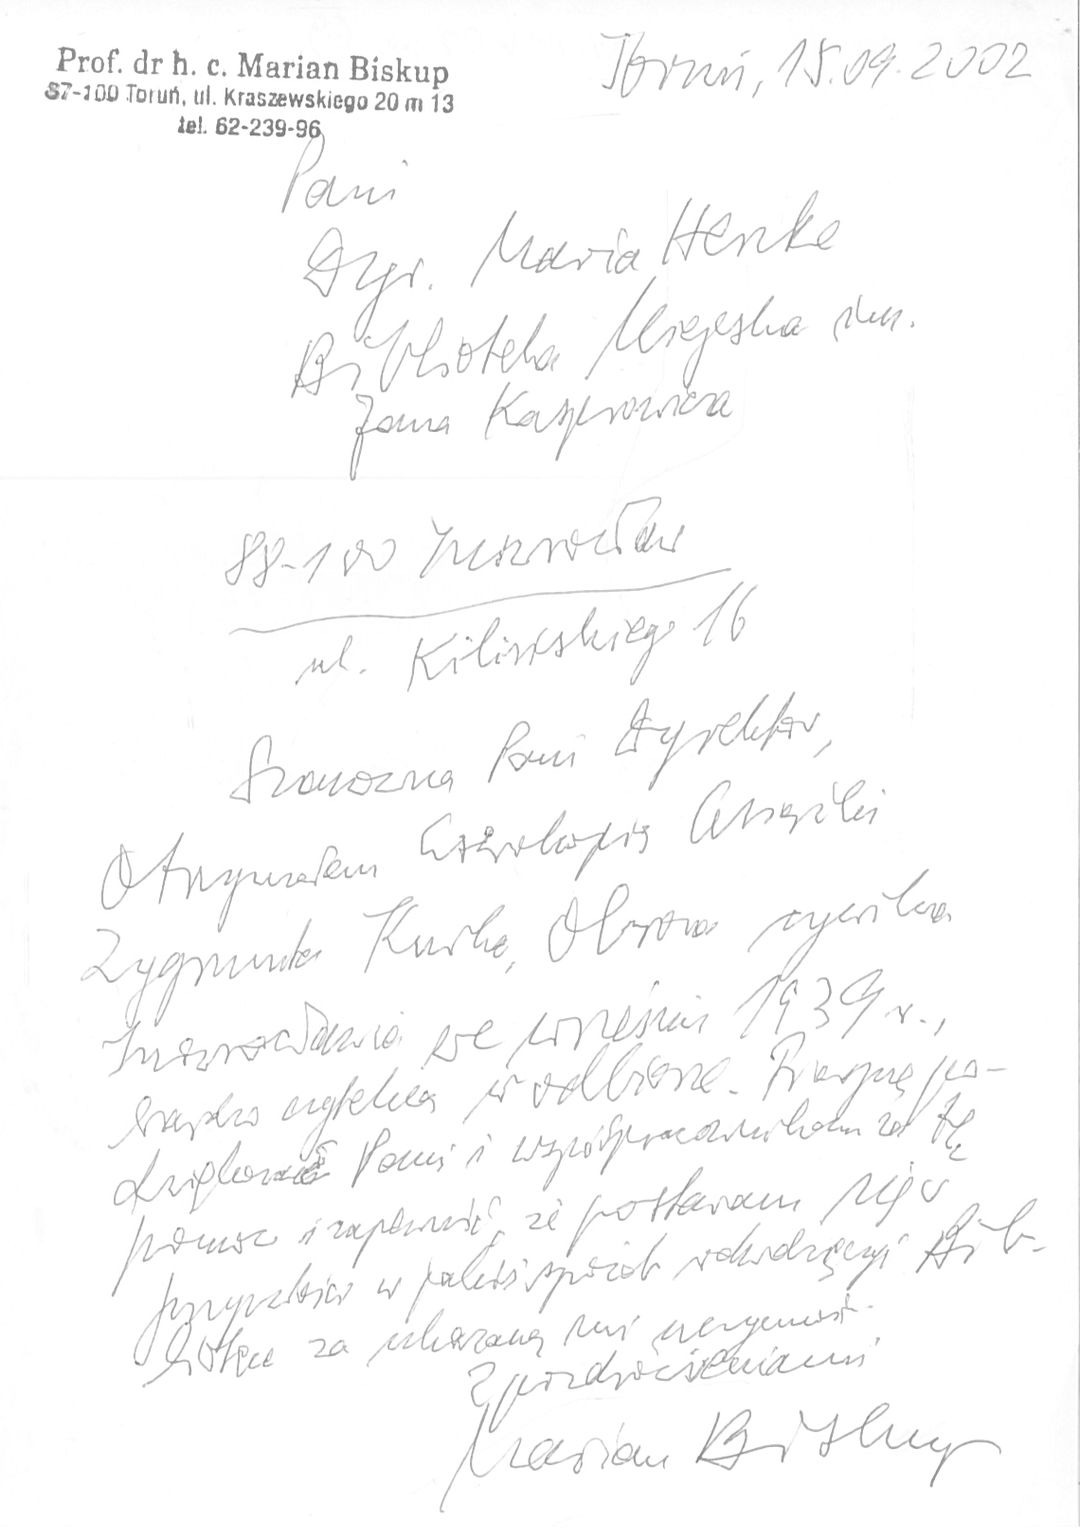 Prof. dr h. c. Marian Biskup
87-100 Toruń, ul. Kraszewskiego 20 m 13
tel. 62-239-96
Toruń, 15.09.2002
Pani
Dyr. Maria Henke
Biblioteka Miejska im.
Jana Kasprowicza
88-100 Inowrocław
ul. Kilińskiego 16
Szanowna Pani Dyrektor,
Otrzymałem kserokopię książki
Zygmunta Kurka, Obrona cywilna
Inowrocławia we wrześniu 1939 r.,
bardzo czytelną w odbiorze. Pragnę po-
dziękować Pani i współpracownikom za tę
pomoc i zapewnić, że postaram się w
przyszłości w jakiś sposób odwdzięczyć Bib-
liotece za okazaną mi uczynność.
Z pozdrowieniami
Marian Biskup